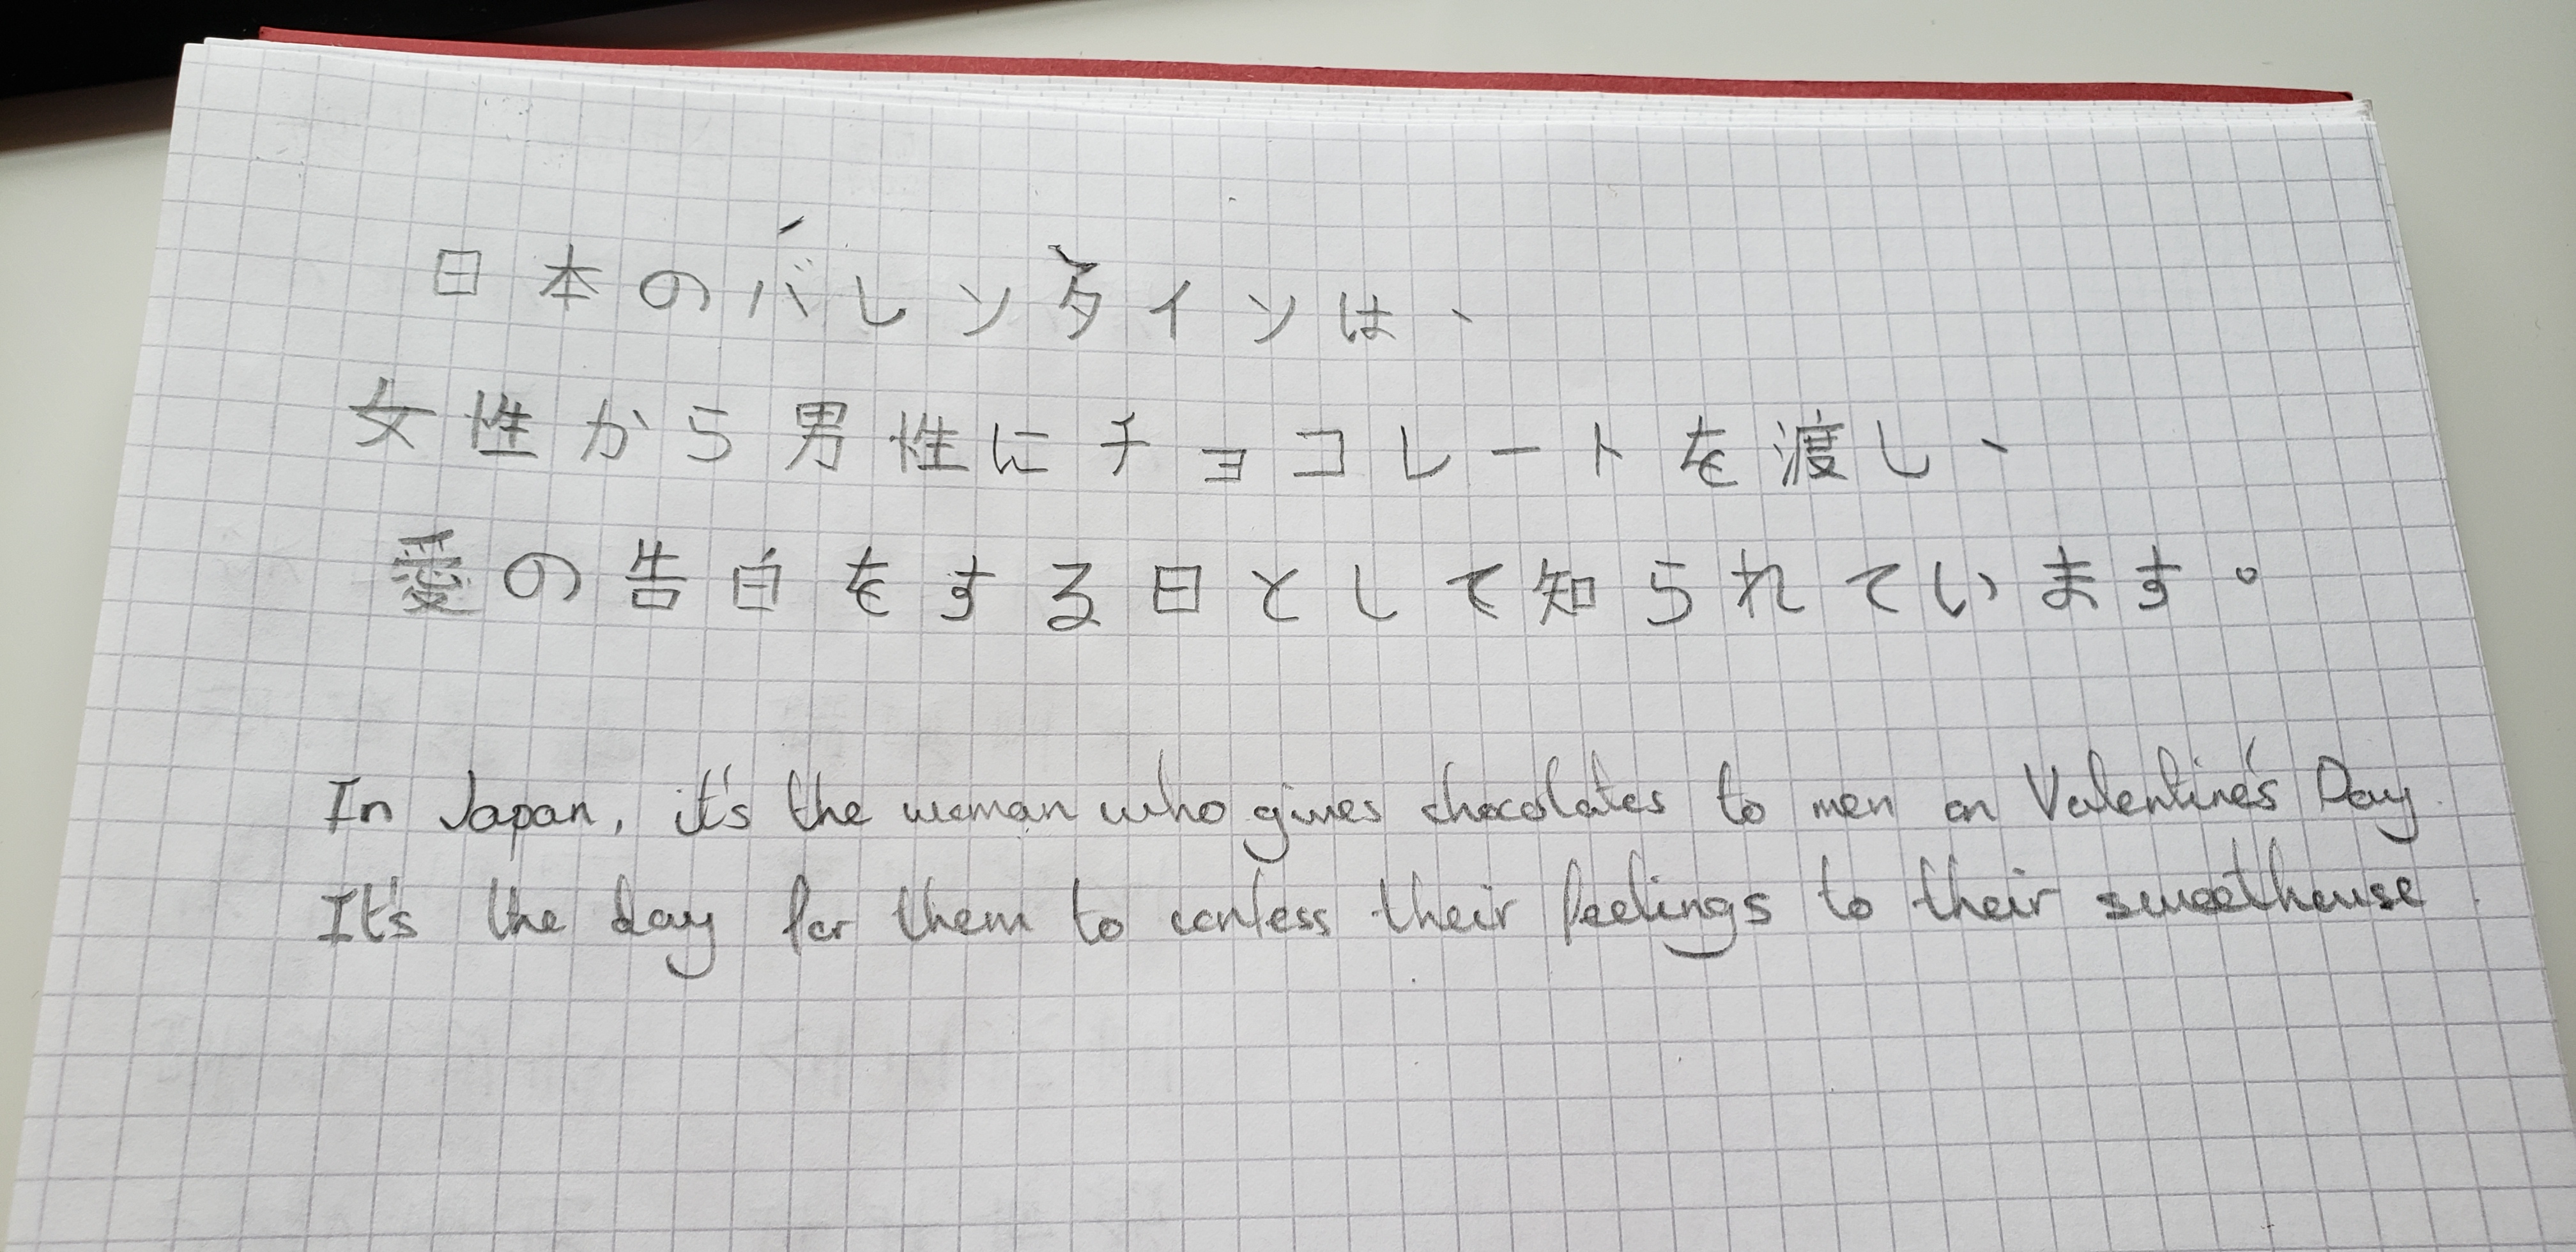 日本のバレンタインは、
女性から男性にチョコレートを渡し、
愛の告白をする日として知られています。
In Japan, it's the woman who gives chocolates to men on Valentine's Day.
It's the day for them to confess their feelings to their sweethouse.